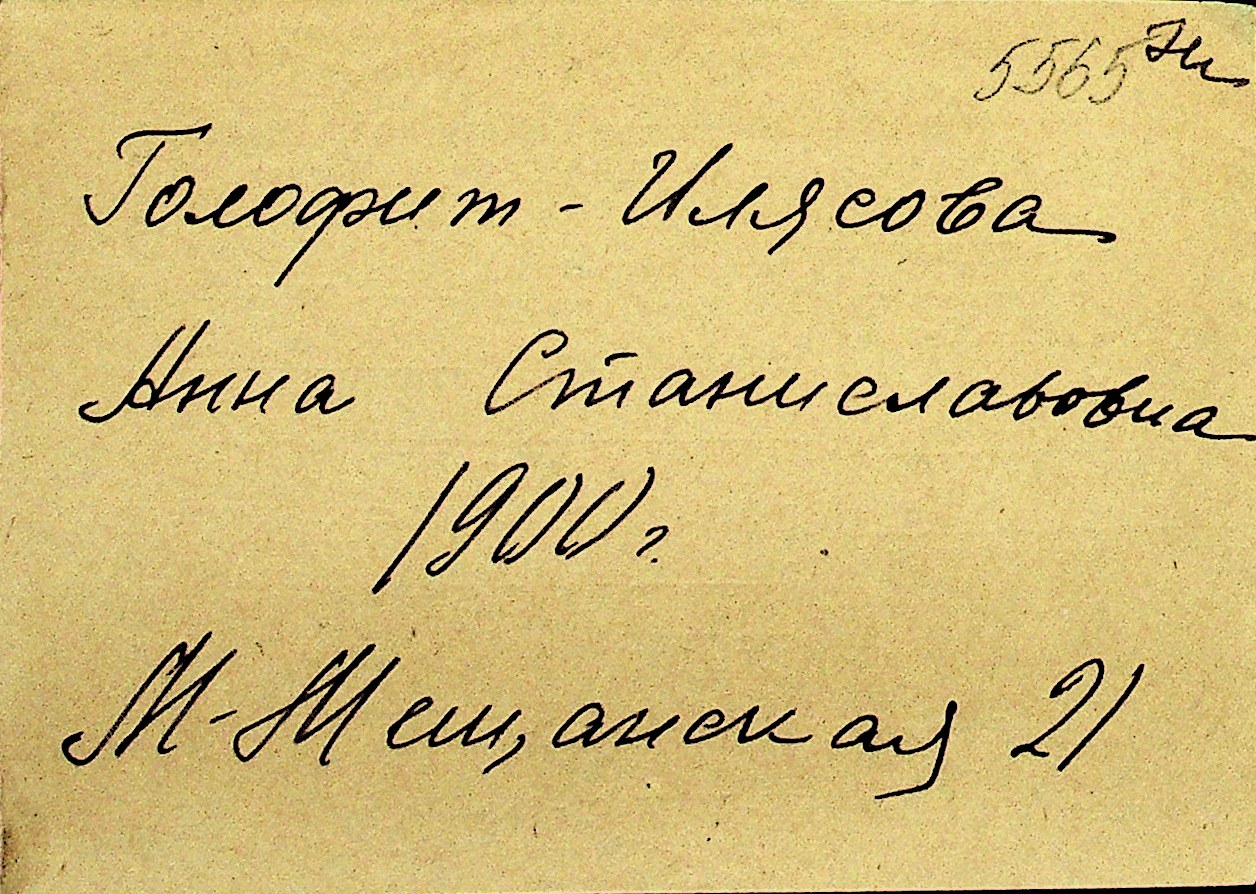 5565
Голофит - Илясова
Анна Станиславовна
1900 г.
М-Мещанская 21